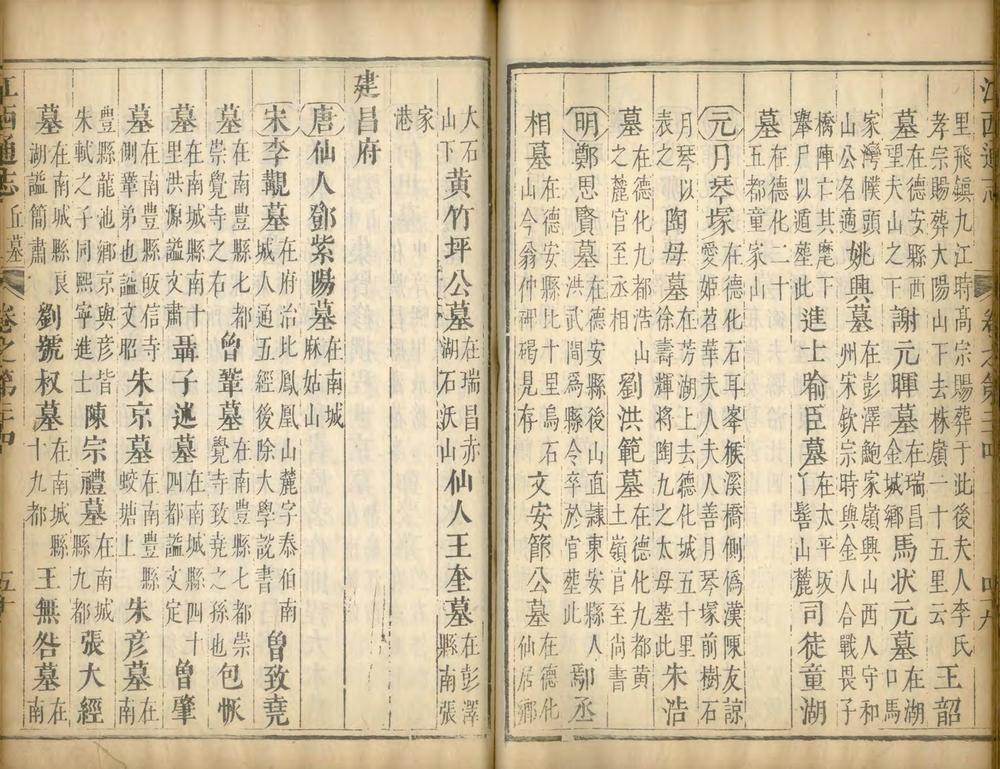 里飛鎮九江時高宗賜葬于此後夫人李氏孝宗賜葬大陽山下去株嶺一十五里云王韶
墓在德安縣西望夫山之下謝元暉墓在瑞昌金城鄉馬狀元墓在湖口馬
家灣幞頭山公名適姚興墓在彭澤鮑家嶺興山西人守和州宋欽宗時與金人合戰畏子
橋陣亡其麾舉尸以遁葬此進士喻臣墓在太平坂鬐山麓司徒童湖
墓在德化二十五都童家山
元月琴塚在德化石耳峯猴溪橋側僞漢陳友諒愛姬苕華夫人夫人善月琴塚前樹石
月琴以表之陶母墓在芳湖上去德化城五十里徐壽輝將陶九之太母葬此朱浩
墓在德化九都浩山之麓官至丞相劉洪範墓在德化九都黄土嶺官至尚書
明鄭思賢墓在德安縣後山直隸東安縣人洪武間爲縣令卒於官葬此鄢丞
相墓在德安縣北十里烏石山今翁仲碑碣見存文安節公墓在德化仙居鄉
大石山下黄竹坪公墓在瑞昌赤湖石沃山仙人王奎墓在彭澤縣南張
家港
建昌府
唐仙人鄧紫陽墓在南城麻姑山
宋李覯墓在府治北鳳凰山麓字泰伯南城人通五經後除大學說書曾致堯
墓在南豐縣七都崇覺寺之右曾鞏墓在南豐縣七都崇覺寺致堯之孫也包恢
墓在南城縣南十里洪源謚文肅聶子述墓在南城縣四十四都謚文定曾肇
墓在南豐縣皈信寺側鞏弟也謚文昭朱京墓在南豐縣蛟塘上朱彦墓在南
豐縣龍池鄉京與彦皆朱軾之子同熙寧進士陳宗禮墓在南城縣九都張大經
墓在南城縣長湖謚簡肅劉號叔墓在南城縣十九都王無咎墓在南
江西通志丘墓 卷之第三 五十